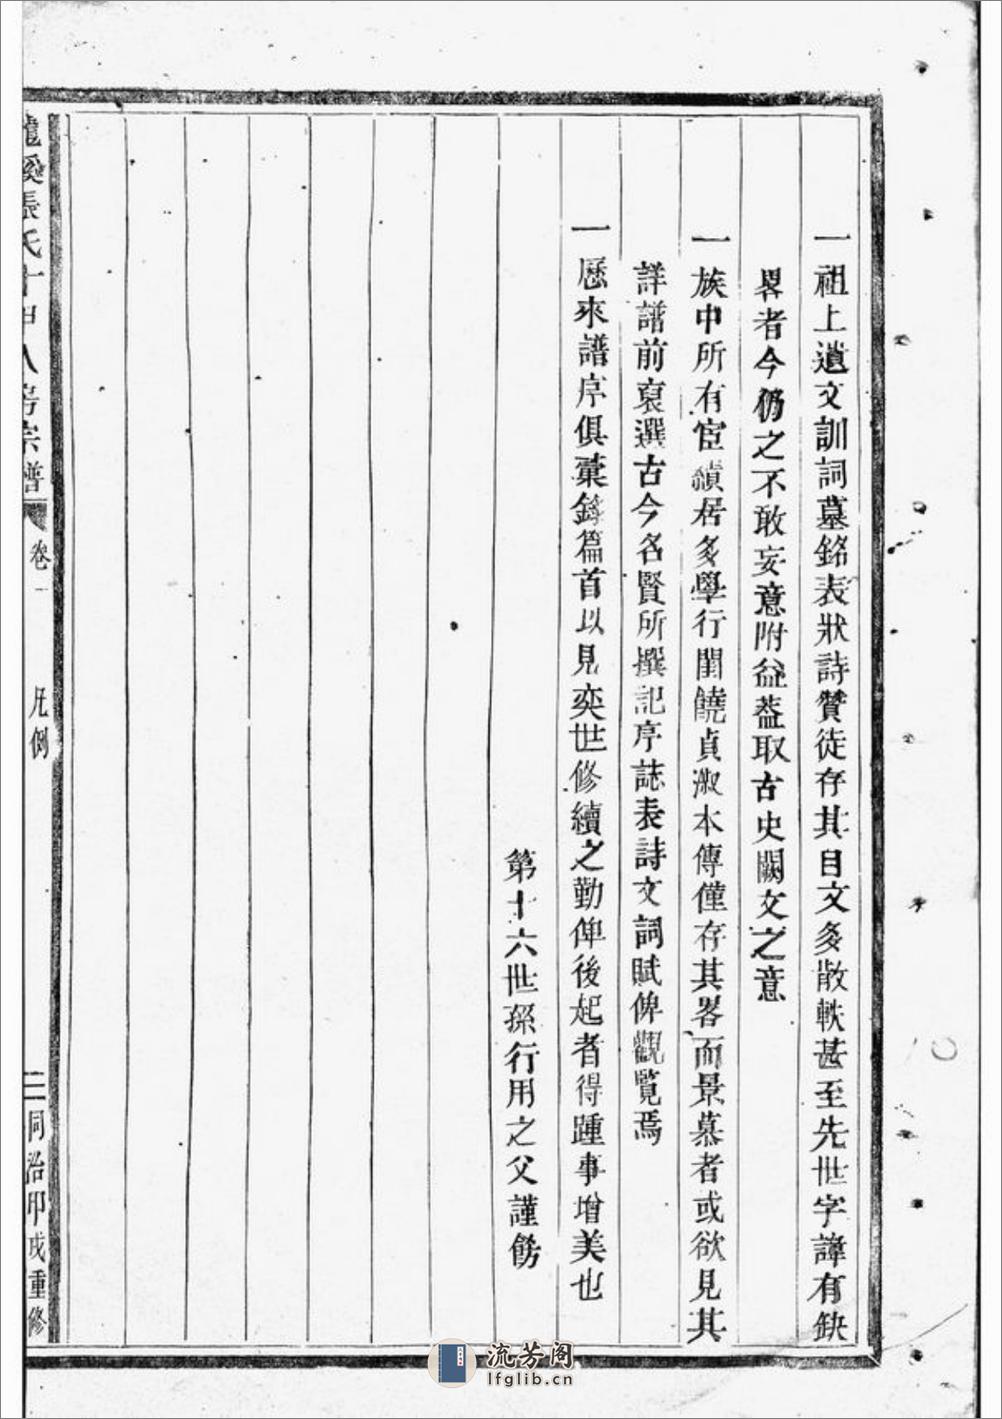 一祖上遺文訓詞墓銘表狀詩贊徒存其目文多散軼甚至先世字諱有缺
畧者今仍之不敢妄意附益葢取古史闕文之意
一族中所有宦績居多學行閨饒貞淑本傳僅存其畧而景慕者或欲見其
詳譜前裒選古今名賢所撰記序誌表詩文詞賦俾觀覽焉
一歷來譜序俱彚鋟篇首以見奕世修續之勤俾後起者得踵事增美也
第十六世孫行用之父謹飭
龍溪張氏十甲八房宗譜
卷一
凡例
三
同治
戌重修
流芳阁
lfglib.cn